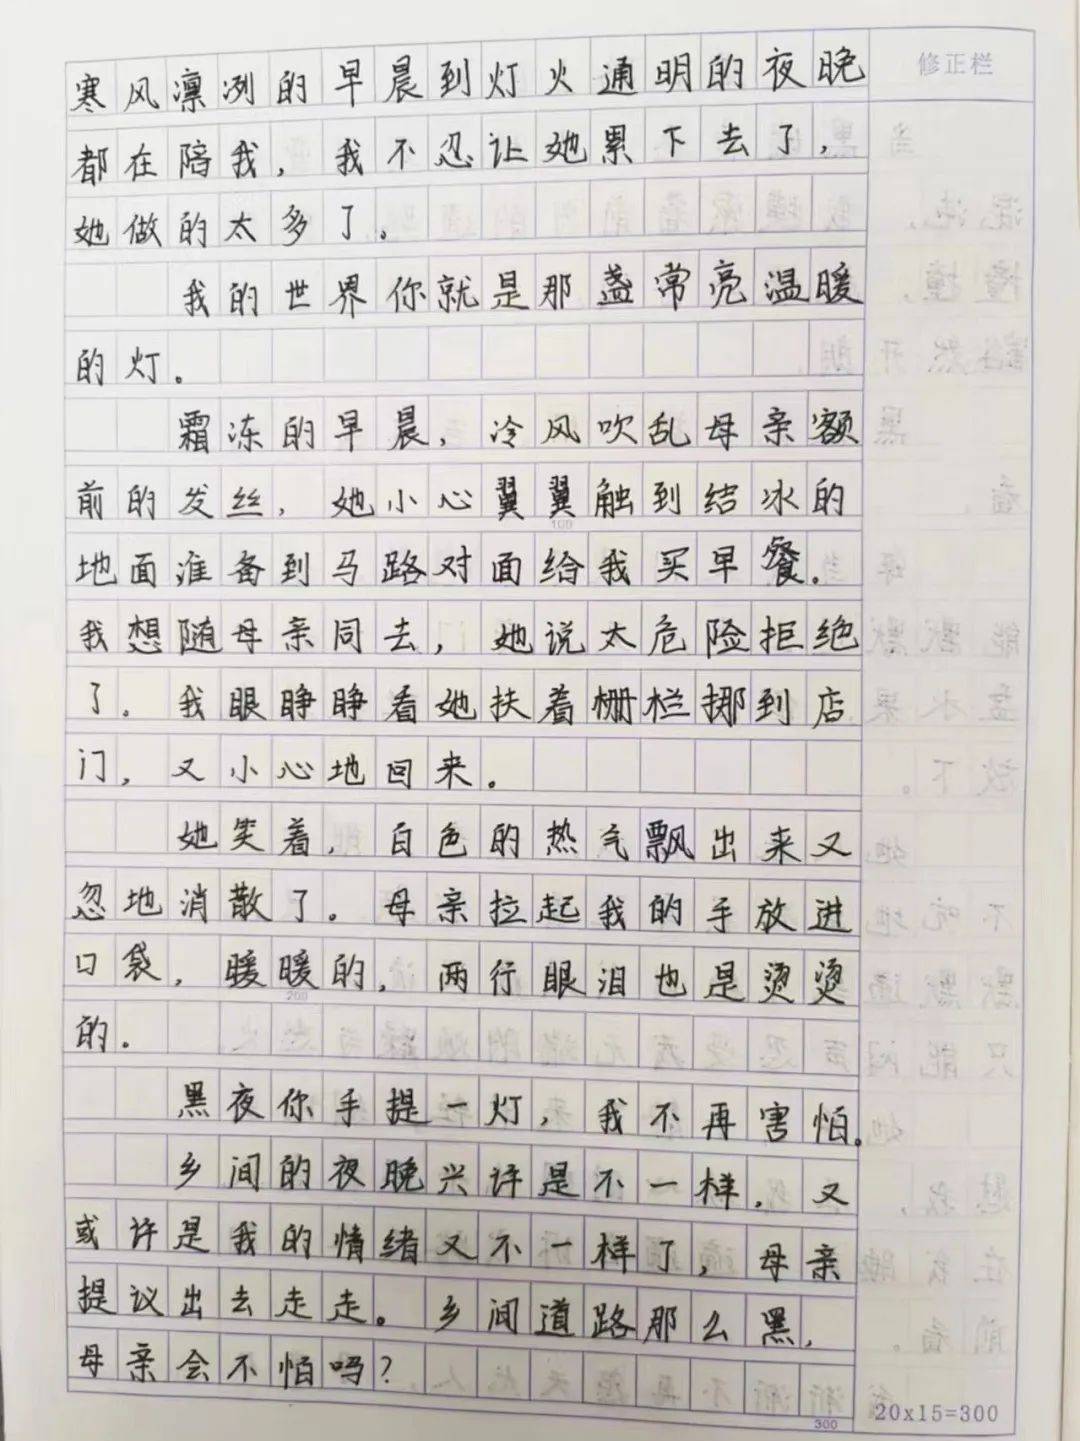 寒风凛冽的早晨到灯火通明的夜晚
修正栏
都在陪我，我不忍让她累下去了，
她做的太多了。
我的世界你就是那盏常亮温暖
的灯。
霜冻的早晨，冷风吹乱母亲额
前的发丝，她小心翼翼触到结冰的
100
地面准备到马路对面给我买早餐。
我想随母亲同去，她说太危险拒绝
了。我眼睁睁看她扶着栅栏挪到店
门，又小心地回来。
她笑着，白色的热气飘出来又
忽地消散了。母亲拉起我的手放进
口袋，暖暖的，两行眼泪也是烫烫
200
的。
黑夜你手提一灯，我不再害怕。
乡间的夜晚兴许是不一样。又
或许是我的情绪又不一样了，母亲
提议出去走走。乡间道路那么黑，
母亲会不怕吗？
300
20x15=300